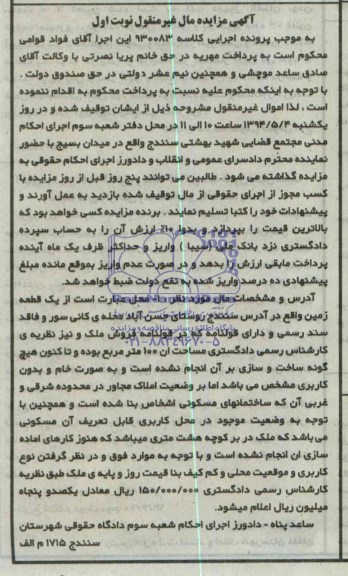 آگهی مزایده مال غیرمنقول نوبت اول
به موجب پرونده اجرایی کلاسه ۹۳۰۰۸۳ این اجرا آقای فواد قوامی
محکوم است به پرداخت مهریه در حق خانم پریا نصرتی با وکالت آقای
صادق ساعد موچشی و همچنین نیم عشر دولتی در حق صندوق دولت .
با توجه به اینکه محکوم علیه نسبت به پرداخت محکوم به اقدام ننموده
است ، لذا اموال غیرمنقول مشروحه ذیل از ایشان توقیف شده و در روز
یکشنبه ۱۳۹۴/۵/۴ ساعت ۱۰ الی ۱۱ در محل دفتر شعبه سوم اجرای احکام
مدنی مجتمع قضایی شهید بهشتی سنندج واقع در میدان بسیج با حضور
نماینده محترم دادسرای عمومی و انقلاب و دادورز اجرای احکام حقوقی به
مزایده گذاشته می شود . طالبین می توانند پنج روز قبل از روز مزایده با
کسب مجوز از اجرای حقوقی از مال توقیف شده بازدید به عمل آورند و
پیشنهادات خود را کتبا تسلیم نمایند . برنده مزایده کسی خواهد بود که
بالاترین قیمت را بپردازد و بدوا ۱۰٪ ارزش آن را به حساب سپرده
دادگستری نزد بانک ملی (سیبا ) واریز و حداکثر ظرف یک ماه آینده
پرداخت مابقی ارزش را بدهد و در صورت عدم واریز بموقع مانده مبلغ
پیشنهادی ده درصد واریز شده به نفع دولت ضبط خواهد شد.
آدرس و مشخصات مال مورد نظر : محل عبارت است از یک قطعه
زمین واقع در آدرس سنندج روستای حسن آباد محله ی کانی سور و فاقد
سند رسمی و دارای قولنامه که در قولنامه فروش ملک و نیز نظریه ی
کارشناس رسمی دادگستری مساحت آن ۱۰۰ متر مربع بوده و تا کنون هیچ
گونه ساخت و سازی بر آن انجام نشده است و به صورت خام و بدون
کاربری مشخص می باشد اما بر وضعیت املاک مجاور در محدوده شرقی و
غربی آن که ساختمانهای مسکونی اشخاص بنا شده است و همچنین با
توجه به وضعیت موجود در محل کاربری قابل تعریف آن مسکونی
می باشد که ملک در بر کوچه هشت متری میباشد که هنوز کارهای اماده
سازی ان انجام نشده است و با توجه به موارد فوق و در نظر گرفتن نوع
کاربری و موقعیت محلی و کم کیف بنا قیمت روز و پایه ی ملک طبق نظریه
کارشناس رسمی دادگستری ۱۵۰/۰۰۰/۰۰۰ ریال معادل یکصدو پنجاه
میلیون ریال اعلام میشود.
ساعد پناه - دادورز اجرای احکام شعبه سوم دادگاه حقوقی شهرستان
سنندج ۱۷۱۵ م الف
۰۲۱-۸۸۳۴۹۶۷۰-۵